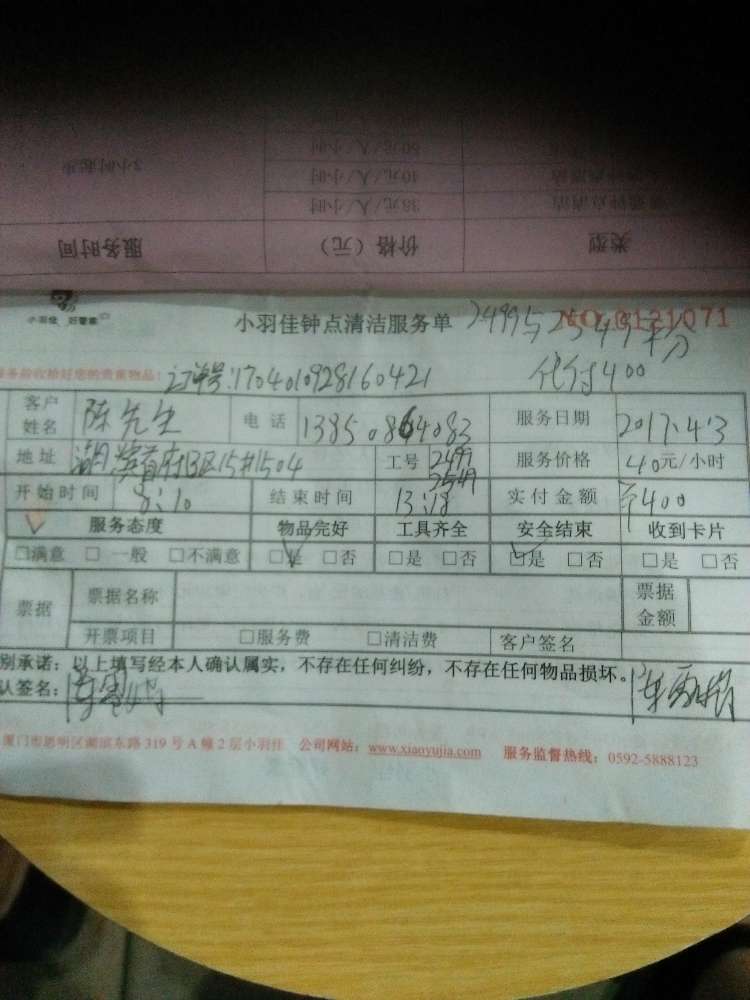 3小时起步
60元/人/小时
40元/人/小时
36元/人/小时
类型 价格（元） 服务时间
小羽佳 好管家
小羽佳钟点清洁服务单 2499与2549平分 NO.0121071
订单号:1704010928160421 代付400
客户姓名 陈先生 电话 13850864083 服务日期 2017.4.3
地址 湖滨首府B区15#1504 工号 2499 2549 服务价格 40元/小时
开始时间 8:10 结束时间 13:18 实付金额 ¥400
服务态度 物品完好 工具齐全 安全结束 收到卡片
□满意 □一般 □不满意 □是 □否 □是 □否 □是 □否 □是 □否
票据 票据名称 票据金额
开票项目 □服务费 □清洁费 客户签名
别承诺：以上填写经本人确认属实，不存在任何纠纷，不存在任何物品损坏。
认签名：
厦门市思明区湖滨东路319号A幢2层小羽佳 公司网站：www.xiaoyujia.com 服务监督热线：0592-5888123